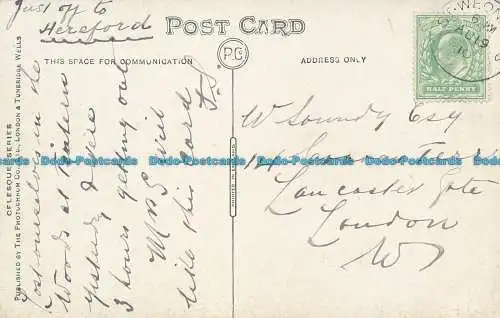 Just off to
Hereford
POST CARD
P.C
THIS SPACE FOR COMMUNICATION
ADDRESS ONLY
HALF PENNY
Lost ourselves in the
Woods at Tintern
yesterday, & were
3 hours getting out
Mrs G will
like this card
CELESQUE SERIES
PUBLISHED BY THE PHOTOCHROM CO., LTD., LONDON & TUNBRIDGE WELLS
W Soundy Esq
14
Lancaster Gate
London
W
Dodo-Postcards Dodo-Postcards Dodo-Postcards Dodo-Postcards Dodo-Postcards